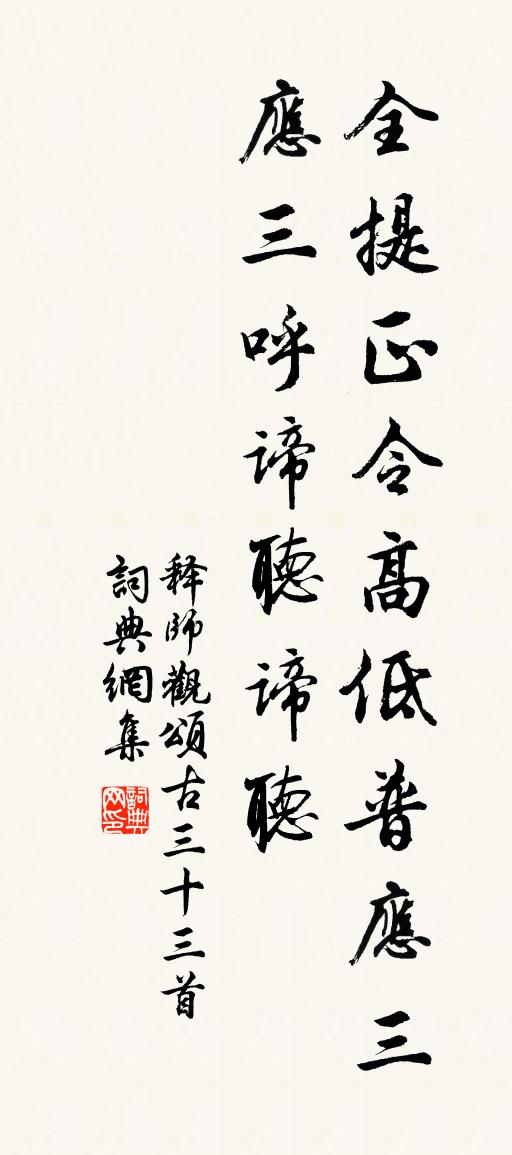 全提正令高低普應三
應三呼諦聽諦聽
释師觀頌古三十三首
詞典網集
詞典网印